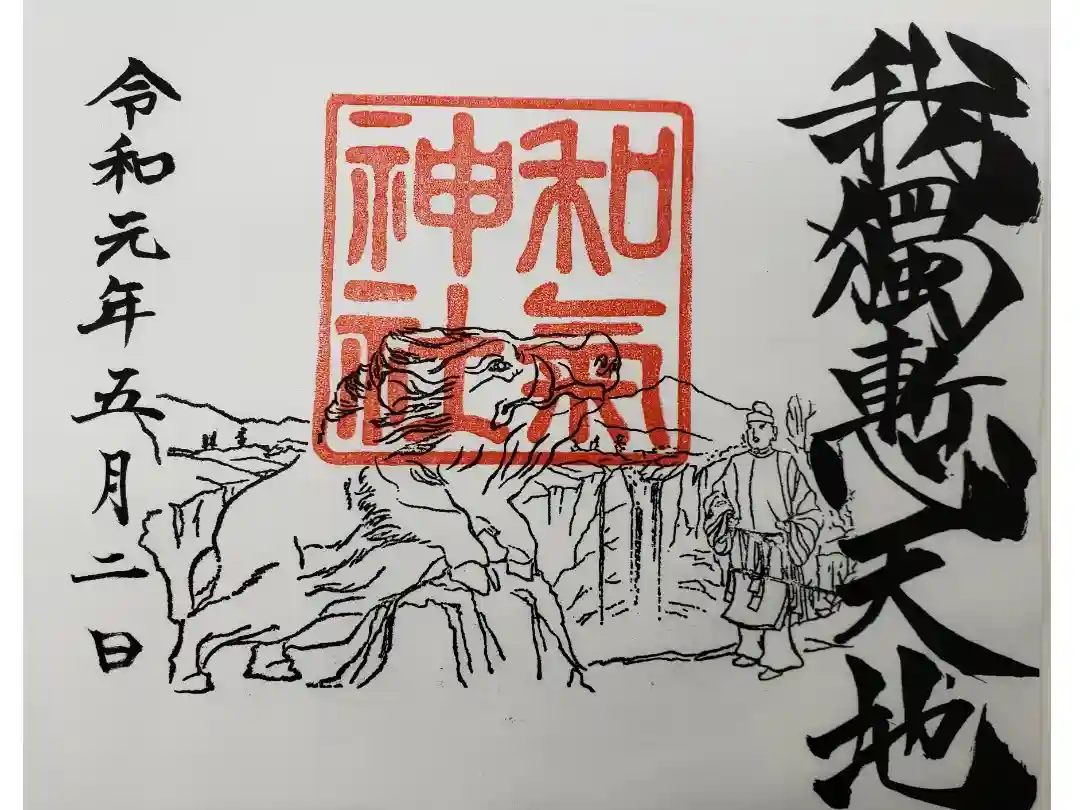 我獨慙天地
和氣
神社
令和元年五月二日